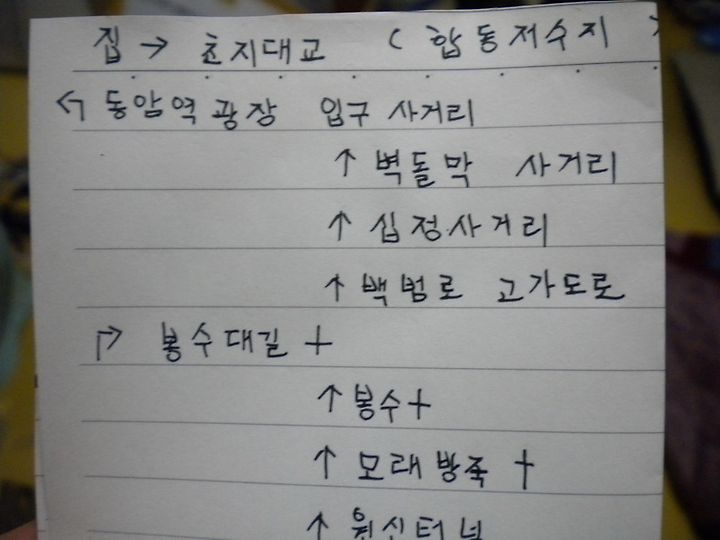 집 → 초지대교 ( 합동저수지 )
↰ 동암역광장 입구 사거리
↑ 벽돌막 사거리
↑ 십정사거리
↑ 백범로 고가도로
↱ 봉수대길 +
↑ 봉수+
↑ 모래방죽 +
↑ 원신터널